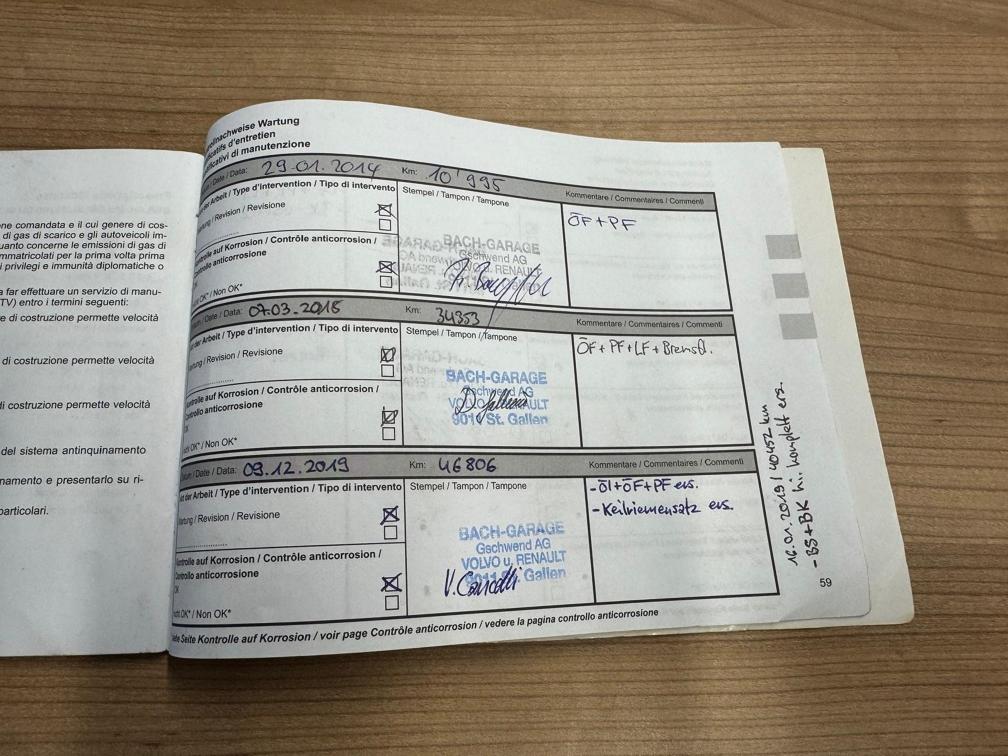 ne comandata e il cui genere di cos-
di gas di scarico e gli autoveicoli im-
uanto concerne le emissioni di gas di
mmatricolati per la prima volta prima
i privilegi e immunità diplomatiche o
a far effettuare un servizio di manu-
TV) entro i termini seguenti:
e di costruzione permette velocità
di costruzione permette velocità
di costruzione permette velocità
del sistema antinquinamento
namento e presentarlo su ri-
particolari.
nachweise Wartung
catifs d'entretien
ficativi di manutenzione
/ Date / Data: 29.01.2014 Km: 10'995
der Arbeit / Type d'intervention / Tipo di intervento
Stempel / Tampon / Tampone
Kommentare / Commentaires / Commenti
/ Revision / Revisione
ŌF + PF
auf Korrosion / Contrôle anticorrosion /
anticorrosione
OK* / Non OK*
BACH-GARAGE
Gschwend AG
u. RENAULT
/ Date / Data: 07.03.2018 Km: 34353
der Arbeit / Type d'intervention / Tipo di intervento
Stempel / Tampon / Tampone
Kommentare / Commentaires / Commenti
/ Revision / Revisione
ŌF + PF + LF + Bremsfl.
auf Korrosion / Contrôle anticorrosion /
anticorrosione
OK* / Non OK*
BACH-GARAGE
Gschwend AG
VOLVO u. RENAULT
St. Gallen
/ Date / Data: 09.12.2019 Km: 46806
Arbeit / Type d'intervention / Tipo di intervento
Stempel / Tampon / Tampone
Kommentare / Commentaires / Commenti
/ Revision / Revisione
- Öl + ŌF + PF ers.
- Keilriemensatz ers.
auf Korrosion / Contrôle anticorrosion /
anticorrosione
OK* / Non OK*
BACH-GARAGE
Gschwend AG
VOLVO u. RENAULT
Gallen
Seite Kontrolle auf Korrosion / voir page Contrôle anticorrosion / vedere la pagina controllo anticorrosione
16.01.2019 / 40452 km
- BS + BK hi. komplett ers.
59